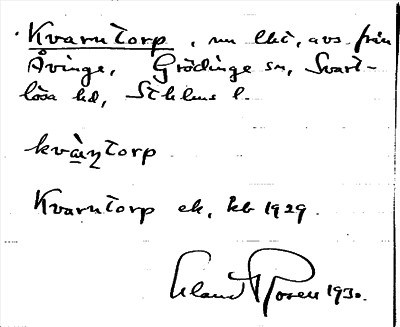 Kvarntorp, nu lht, avs. från
Åvinge, Grödinge sn, Svart-
lösa hd, Sthlms l.
kvàntorp
Kvarntorp ek, kb 1929.
1930.